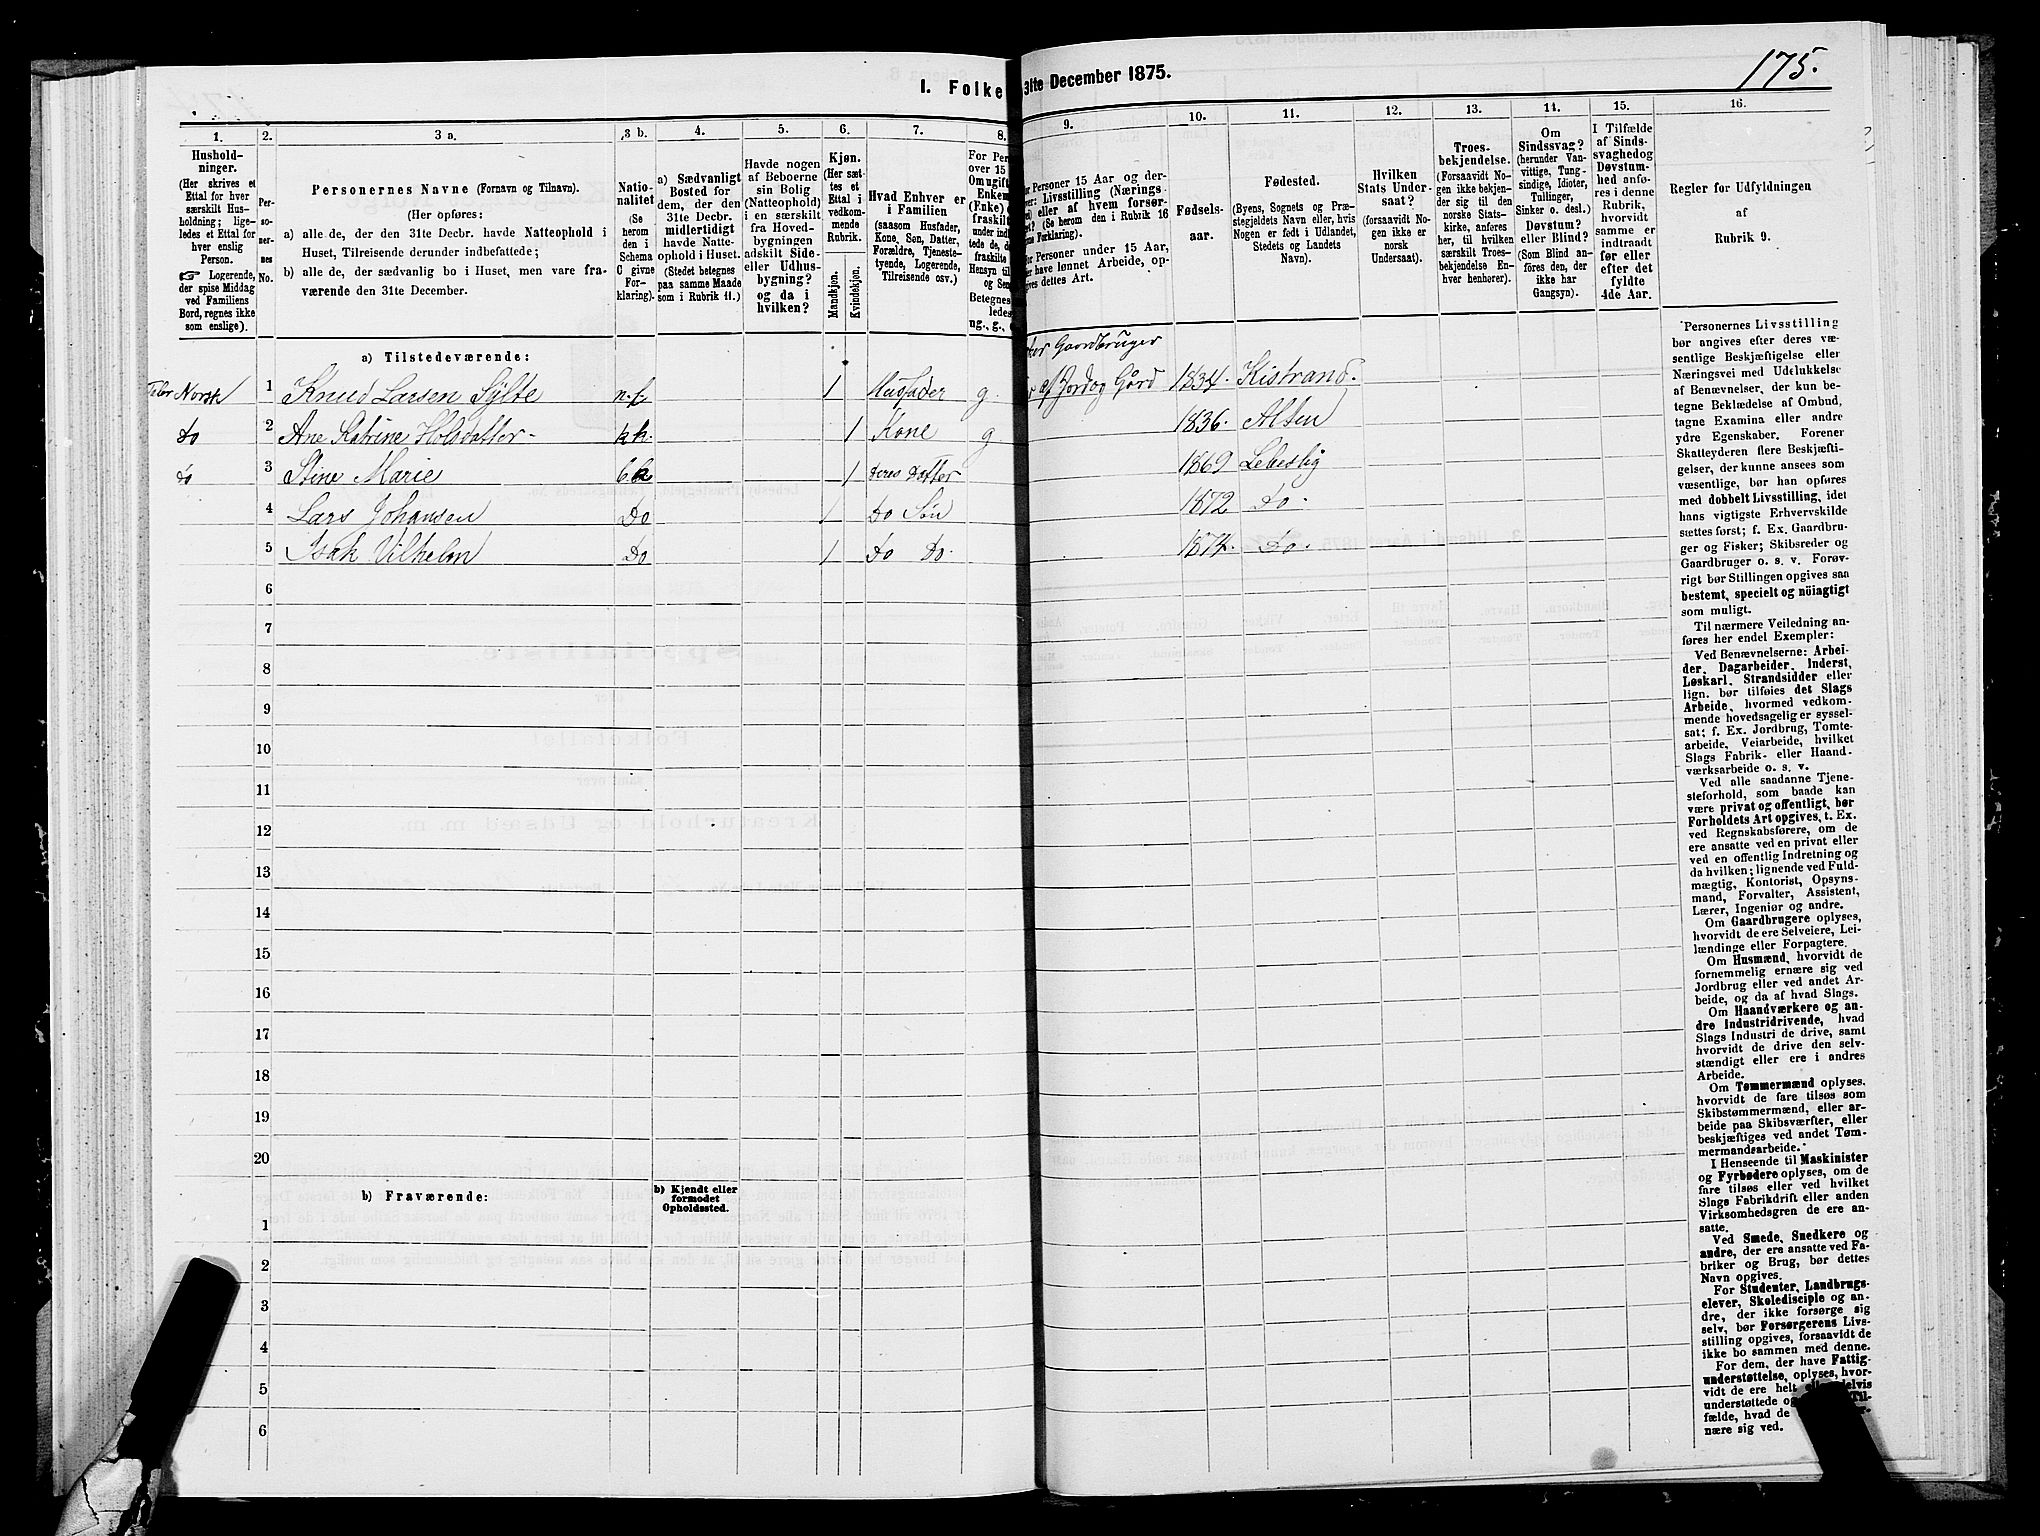 I. Folke 31te December 1875.
175.
1. 2. 3 a. 3 b. 4. 5. 6. 7. 8. 9. 10. 11. 12. 13. 14. 15. 16.
Hushold-
ninger.
(Her skrives et
Ettal for hver
særskilt Hus-
holdning; lige-
ledes et Ettal for
hver enslig
Person.
☞ Logerende,
der spise Middag
ved Familiens
Bord, regnes ikke
som enslige).
Per-
so-
ner-
nes
No.
Personernes Navne (Fornavn og Tilnavn).
(Her opføres:
a) alle de, der den 31te Decbr. havde Natteophold i
Huset, Tilreisende derunder indbefattede;
b) alle de, der sædvanlig bo i Huset, men vare fra-
værende den 31te December.
Natio-
nalitet
(Se
herom
den i
Schema
C givne
For-
klaring).
a) Sædvanligt
Bosted for
dem, der den
31te Decbr.
midlertidigt
havde Natte-
ophold i Huset.
(Stedet betegnes
paa samme Maade
som i Rubrik 11.)
Havde nogen
af Beboerne
sin Bolig
(Natteophold)
i en særskilt
fra Hoved-
bygningen
adskilt Side-
eller Udhus-
bygning?
og da i
hvilken?
Kjøn.
(Her sæt-
tes et
Ettal i
vedkom-
mende
Rubrik.
Mandkjøn.
Kvindekjøn.
Hvad Enhver er
i Familien
(saasom Husfader,
Kone, Søn, Datter,
Forældre, Tjeneste-
tyende, Logerende,
Tilreisende osv.)
For Per
over 15
Om ugift
Enkem
(Enke)
fraskilt
under indt
tede de, d
fraskilte
Hensyn til
og Sen
Betegnes
ledes
ng., g.,
or Personer 15 Aar og der-
ver: Livsstilling (Nærings-
ei) eller af hvem forsør-
et? (Se herom den i Rubrik 16
ne Forklaring).
or Personer under 15 Aar,
er have lønnet Arbeide, op-
gives dettes Art.
Fødsels-
aar.
Fødested.
(Byens, Sognets og Præ-
stegjeldets Navn eller, hvis
Nogen er født i Udlandet,
Stedets og Landets
Navn).
Hvilken
Stats Under-
saat?
(forsaavidt No-
gen ikke er
norsk
Undersaat).
Troes-
bekjendelse.
(Forsaavidt No-
gen ikke bekjen-
der sig til den
norske Stats-
kirke, anføres
her, til hvilken
særskilt Troes-
bekjendelse En-
hver henhører).
Om
Sindssvag?
(herunder Van-
vittige, Tung-
sindige, Idioter,
Tullinger,
Sinker o. desl.)
Døvstum?
eller Blind?
(Som Blind an-
føres den, der
ikke har
Gangsyn).
I Tilfælde
af Sinds-
svaghed og
Døvstum-
hed anfø-
res i denne
Rubrik,
hvorvidt
samme er
indtraadt
før eller
efter det
fyldte
4de Aar.
Regler for Udfyldningen
af
Rubrik 9.
a) Tilstedeværende:
Norsk 1 Knud Larsen Sylte n.f. 1 Husfader g. Gaardbruger af Jord og Gård 1834. Kistrand.
Do 2 Ane Katrine Holsdatter - 1 Kone g 1836. Alten
Do 3 Stine Marie 1 Deres Datter 1869 Lebesby
4 Lars Johansen Do 1 Do Søn 1872 Do.
5 Isak Vilhelm Do 1 Do Do. 1874. Do.
6
7
8
9
10
11
12
13
14
15
16
17
18
19
20
b) Fraværende:
b) Kjendt eller
formodet
Opholdssted.
1
2
3
4
5
6
Personernes Livsstilling
bør angives efter deres væ-
sentlige Beskjæftigelse eller
Næringsvei med Udelukkelse
af Benævnelser, der kun be-
tegne Beklædelse af Ombud,
tagne Examina eller andre
ydre Egenskaber. Forener
Skatteyderen flere Beskjæfti-
gelser, der kunne ansees som
væsentlige, bør han opføres
med dobbelt Livsstilling, idet
hans vigtigste Erhvervskilde
sættes først; f. Ex. Gaardbru-
ger og Fisker; Skibsreder og
Gaardbruger o. s. v. Forøv-
rigt bør Stillingen opgives saa
bestemt, specielt og nøiagtigt
som muligt.
Til nærmere Veiledning an-
føres her endel Exempler:
Ved Benævnelserne: Arbei-
der, Dagarbeider, Inderst,
Løskarl, Strandsidder eller
lign. bør tilføies det Slags
Arbeide, hvormed vedkom-
mende hovedsagelig er syssel-
sat; f. Ex. Jordbrug, Tomte-
arbeide, Veiarbeide, hvilket
Slags Fabrik- eller Haand-
værksarbeide o. s. v.
Ved alle saadanne Tjene-
steforhold, som baade kan
være privat og offentligt, bør
Forholdets Art opgives, t. Ex.
ved Regnskabsførere, om de
ere ansatte ved en privat eller
ved en offentlig Indretning og
da hvilken; lignende ved Fuld-
mægtig, Kontorist, Opsyns-
mand, Forvalter, Assistent,
Lærer, Ingeniør og andre.
Om Gaardbrugere oplyses,
hvorvidt de ere Selveiere, Lei-
lændinge eller Forpagtere.
Om Husmænd, hvorvidt de
fornemmelig ernære sig ved
Jordbrug eller ved andet Ar-
beide, og da af hvad Slags.
Om Haandværkere og an-
dre Industridrivende, hvad
Slags Industri de drive, samt
hvorvidt de drive den selv-
stændigt eller ere i andres
Arbeide.
Om Tømmermænd oplyses,
hvorvidt de fare tilsøs som
Skibstømmermænd, eller ar-
beide paa Skibsværfter, eller
beskjæftiges ved andet Tøm-
mermandsarbeide.
I Henseende til Maskinister
og Fyrbødere oplyses, om de
fare tilsøs eller ved hvilket
Slags Fabrikdrift eller anden
Virksomhedsgren de ere an-
satte.
Ved Smede, Snedkere og
andre, der ere ansatte ved Fa-
briker og Brug, bør dettes
Navn opgives.
For Studenter, Landbrugs-
elever, Skoledisciple og an-
dre, der ikke forsørge sig
selv, bør Forsørgerens Livs-
stilling opgives, forsaavidt de
ikke bo sammen med denne.
For dem, der have Fattig-
understøttelse, oplyses, hvor-
vidt de ere helt eller delvis
understøttede og Til-
fælde, hvad de
nære sig ved.